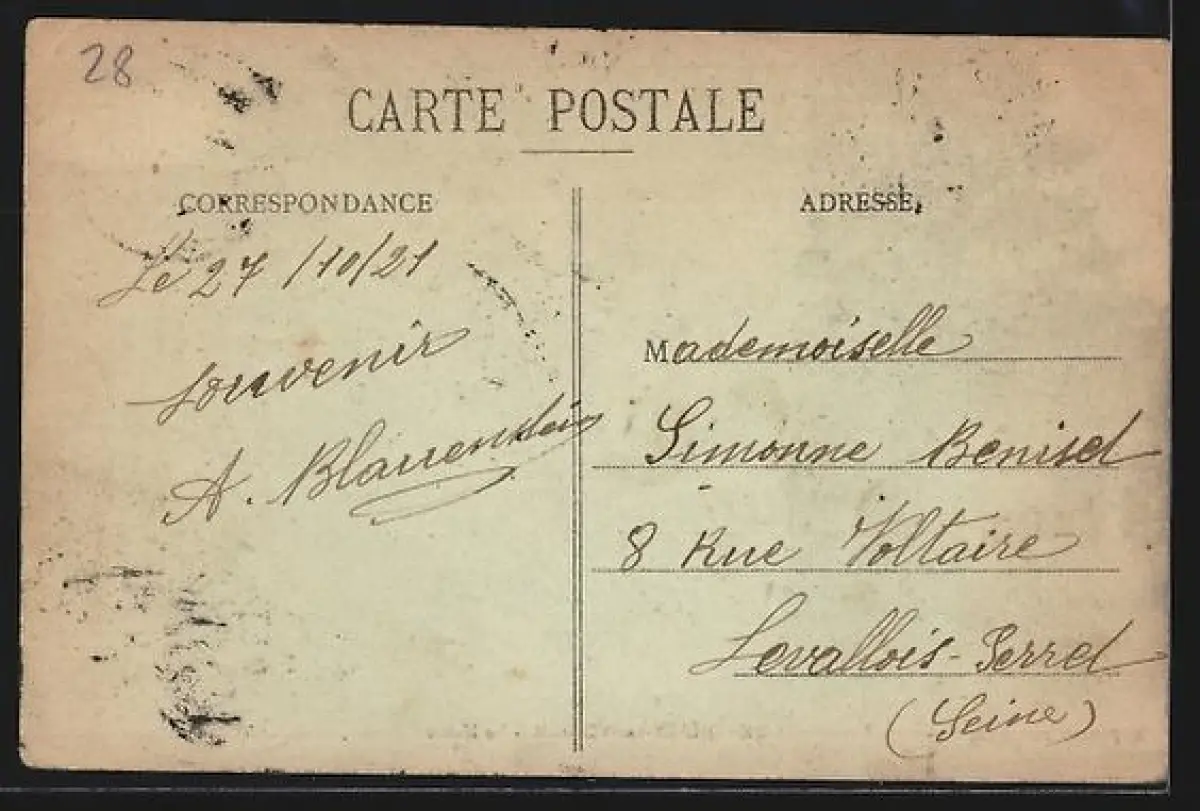 28
CARTE POSTALE
CORRESPONDANCE
Le 27/10/21
Souvenir
A. Blauenstein
ADRESSE
Mademoiselle
Simonne Benised
8 Rue Voltaire
Levallois-Perret
(Seine)